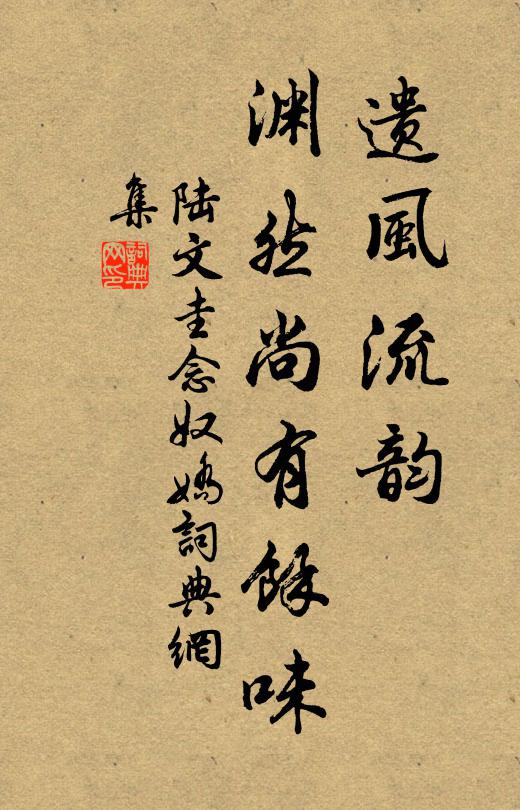 遺風流韵
渊然尚有餘味
陆文圭念奴嬌詞典網
集
詞典
网印